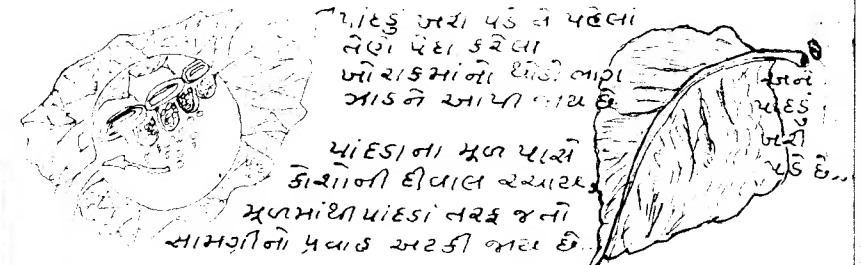 પાંદડું ખરી પડે તે પહેલાં
તેણે પેદા કરેલા
ખોરાકમાંનો થોડો ભાગ
ઝાડને આપી જાય છે
પાંદડાના મૂળ પાસે
કોશોની દીવાલ રચાય.
મૂળમાંથી પાંદડાં તરફ જતો
સામગ્રીનો પ્રવાહ અટકી જાય છે..
અને
પાંદડું
ખરી
પડે છે...